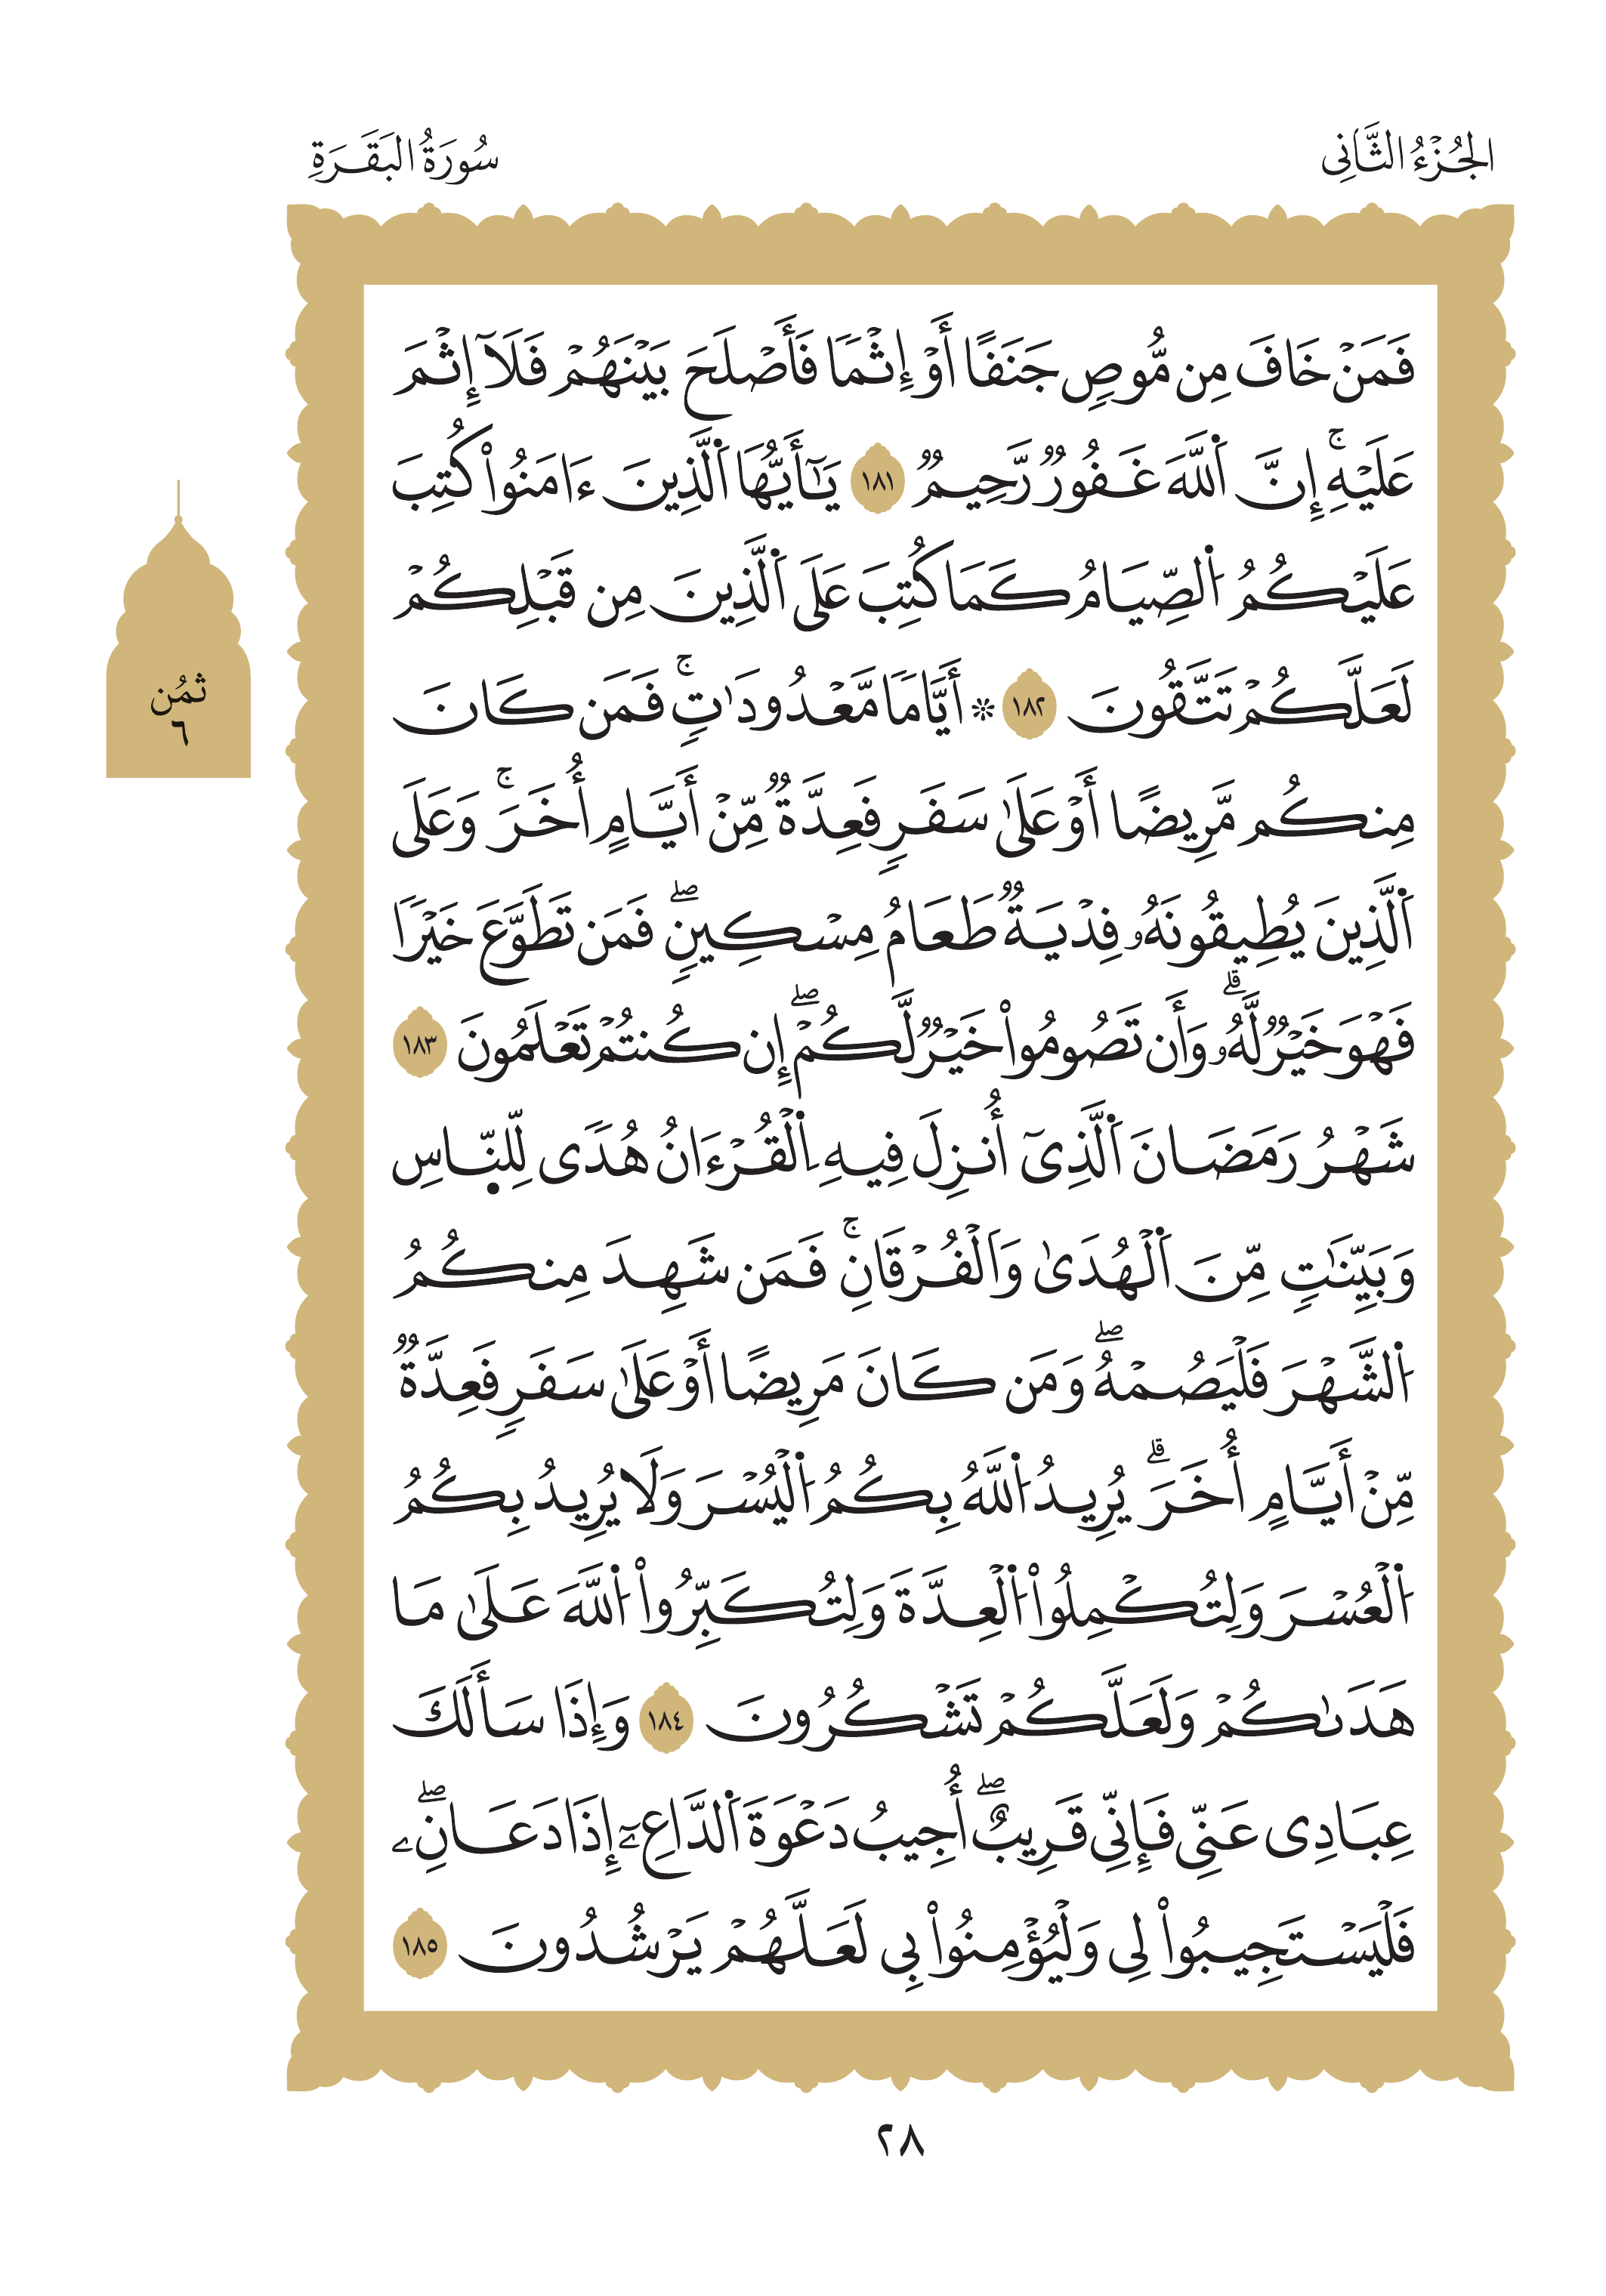 الجُزْءُ الثَّانِى
سُورَةُ البَقَرَةِ
فَمَنْ خَافَ مِن مُّوصٍ جَنَفًا أَوْ إِثْمًا فَأَصْلَحَ بَيْنَهُمْ فَلَآ إِثْمَ
عَلَيْهِۚ إِنَّ اَ۬للَّهَ غَفُورٞ رَّحِيمٞ ١٨١ يَٰٓأَيُّهَا اَ۬لَّذِينَ ءَامَنُواْ كُتِبَ
عَلَيْكُمُ اُ۬لصِّيَامُ كَمَا كُتِبَ عَلَى اَ۬لَّذِينَ مِن قَبْلِكُمْ
لَعَلَّكُمْ تَتَّقُونَ ١٨٢ ۞ أَيَّامٗا مَّعْدُودَٰتٖۚ فَمَن كَانَ
مِنكُم مَّرِيضًا أَوْ عَلَىٰ سَفَرٖ فَعِدَّةٞ مِّنْ أَيَّامٍ أُخَرَۚ وَعَلَى
اَ۬لَّذِينَ يُطِيقُونَهُۥ فِدْيَةٞ طَعَامُ مِسْكِينٖۖ فَمَن تَطَوَّعَ خَيْرٗا
فَهْوَ خَيْرٞ لَّهُۥۗ وَأَن تَصُومُواْ خَيْرٞ لَّكُمْۖ إِن كُنتُمْ تَعْلَمُونَ ١٨٣
شَهْرُ رَمَضَانَ اَ۬لَّذِىٓ أُنزِلَ فِيهِ اِ۬لْقُرْءَانُ هُدٗى لِّلنَّاسِ
وَبَيِّنَٰتٖ مِّنَ اَ۬لْهُدَىٰ وَالْفُرْقَانِۚ فَمَن شَهِدَ مِنكُمُ
اُ۬لشَّهْرَ فَلْيَصُمْهُۖ وَمَن كَانَ مَرِيضًا أَوْ عَلَىٰ سَفَرٖ فَعِدَّةٞ
مِّنْ أَيَّامٍ أُخَرَۗ يُرِيدُ اُ۬للَّهُ بِكُمُ اُ۬لْيُسْرَ وَلَا يُرِيدُ بِكُمُ
اُ۬لْعُسْرَ وَلِتُكْمِلُواْ اُ۬لْعِدَّةَ وَلِتُكَبِّرُواْ اُ۬للَّهَ عَلَىٰ مَا
هَدَىٰكُمْ وَلَعَلَّكُمْ تَشْكُرُونَ ١٨٤ وَإِذَا سَأَلَكَ
عِبَادِى عَنِّى فَإِنِّى قَرِيبٌۖ أُجِيبُ دَعْوَةَ اَ۬لدَّاعِۦٓ إِذَا دَعَانِۦۖ
فَلْيَسْتَجِيبُواْ لِى وَلْيُؤْمِنُواْ بِى لَعَلَّهُمْ يَرْشُدُونَ ١٨٥
ثُمُن
٦
٢٨